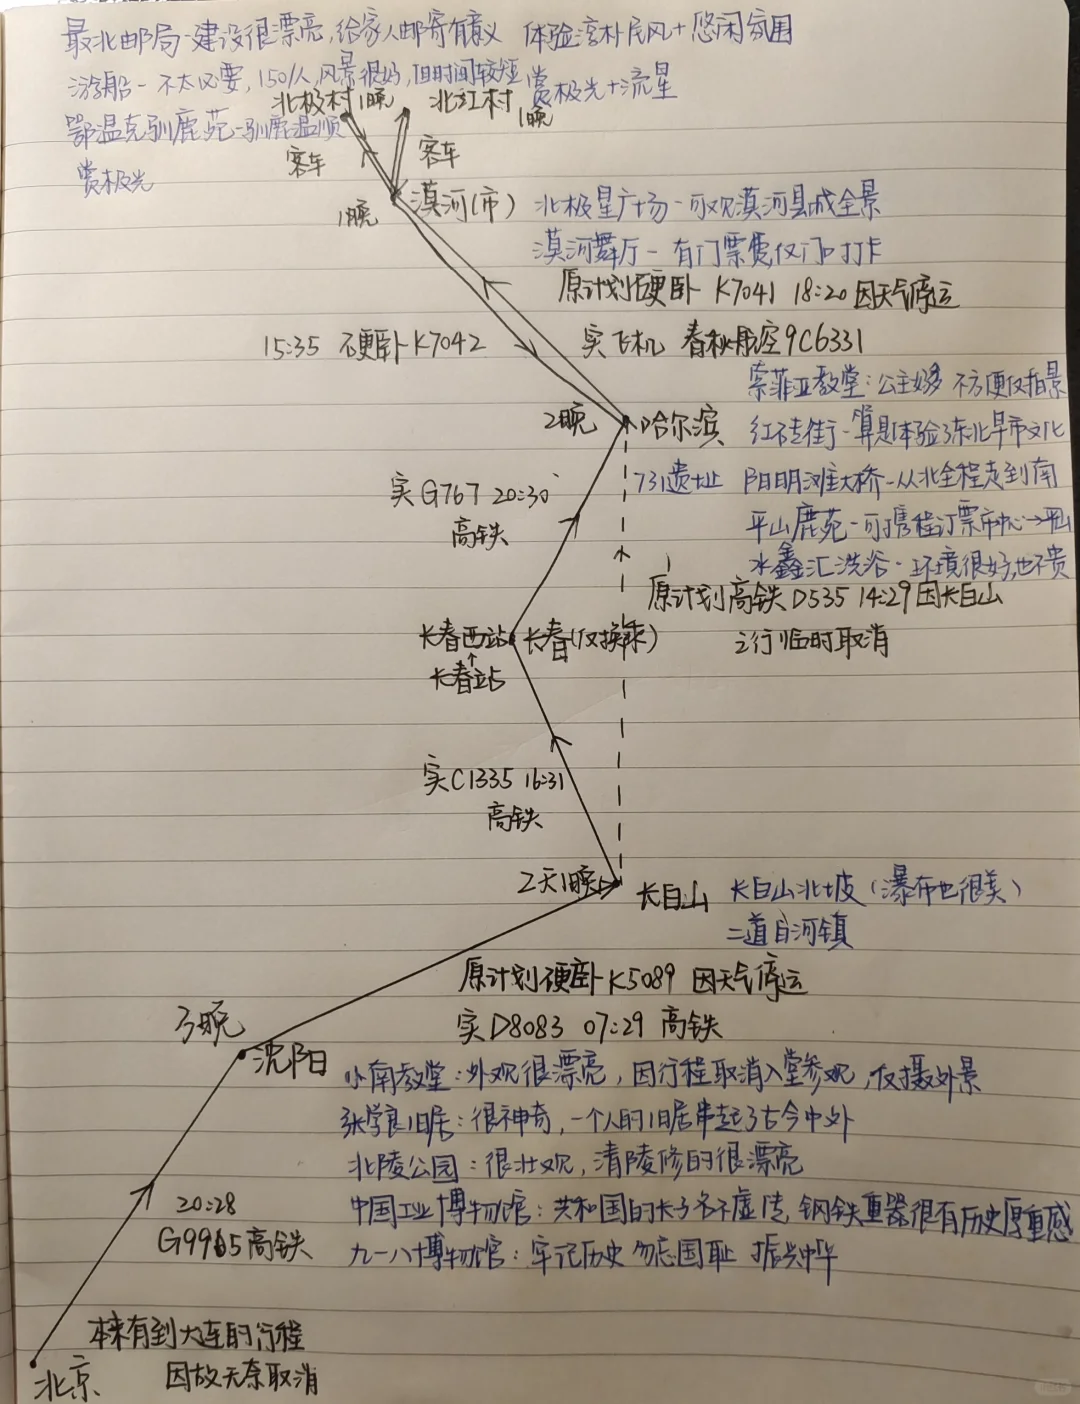 最北邮局-建设很漂亮,给家人邮寄有意义 体验淳朴民风+悠闲氛围
游船-不太必要,150/人,风景很好,但时间较短 赏极光+流星
北极村1晚 北红村1晚
鄂温克驯鹿苑-驯鹿温顺
客车 客车
赏极光
1晚 漠河(市) 北极星广场-可观漠河县城全景
漠河舞厅-有门票费,仅门口打卡
原计划硬卧 K7041 18:20 因天气停运
15:35 硬卧K7042 实飞机 春秋航空9C6331
索菲亚教堂:公主好多 不方便仅拍景
2晚 哈尔滨 红砖街-算是体验了东北早市文化
实G767 20:30 731遗址 阳明滩大桥-从北全程走到南
高铁 平山鹿苑-可携程订票市中心→平山
水鑫汇洗浴-环境很好,也不贵
原计划高铁D535 14:29因长白山
长春西站 长春(仅换乘) 之行临时取消
↑
长春站
实C1335 16:31
高铁
2天1晚 长白山 长白山北坡(瀑布也很美)
二道白河镇
原计划硬卧K5089 因天气停运
3晚 实D8083 07:29 高铁
沈阳 小南教堂:外观很漂亮,因行程取消入堂参观,仅摄外景
张学良旧居:很神奇,一个人的旧居串起了古今中外
北陵公园:很壮观,清陵修的很漂亮
20:28 中国工业博物馆:共和国的长子名不虚传,钢铁重器很有历史厚重感
G9965高铁 九一八博物馆:牢记历史 勿忘国耻 振兴中华
本来有到大连的行程
北京 因故无奈取消